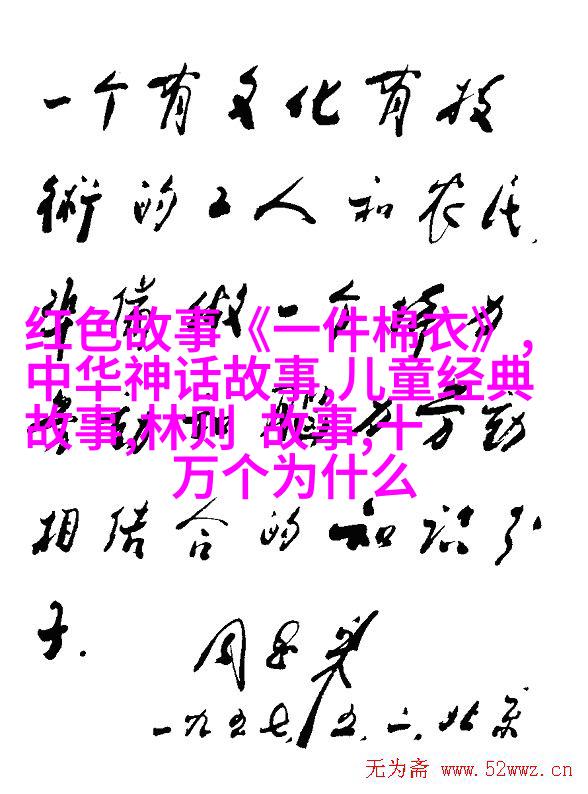 一个有文化有技
術的工人和农民,
做一个
红色故事《一件棉衣》,
中华神话故事,儿童经典
故事,林则 故事,十
万个为什么
相结合的知识分
子.
周恩来
一九五七,五,二,北京
无为斋 www.52wwz.cn